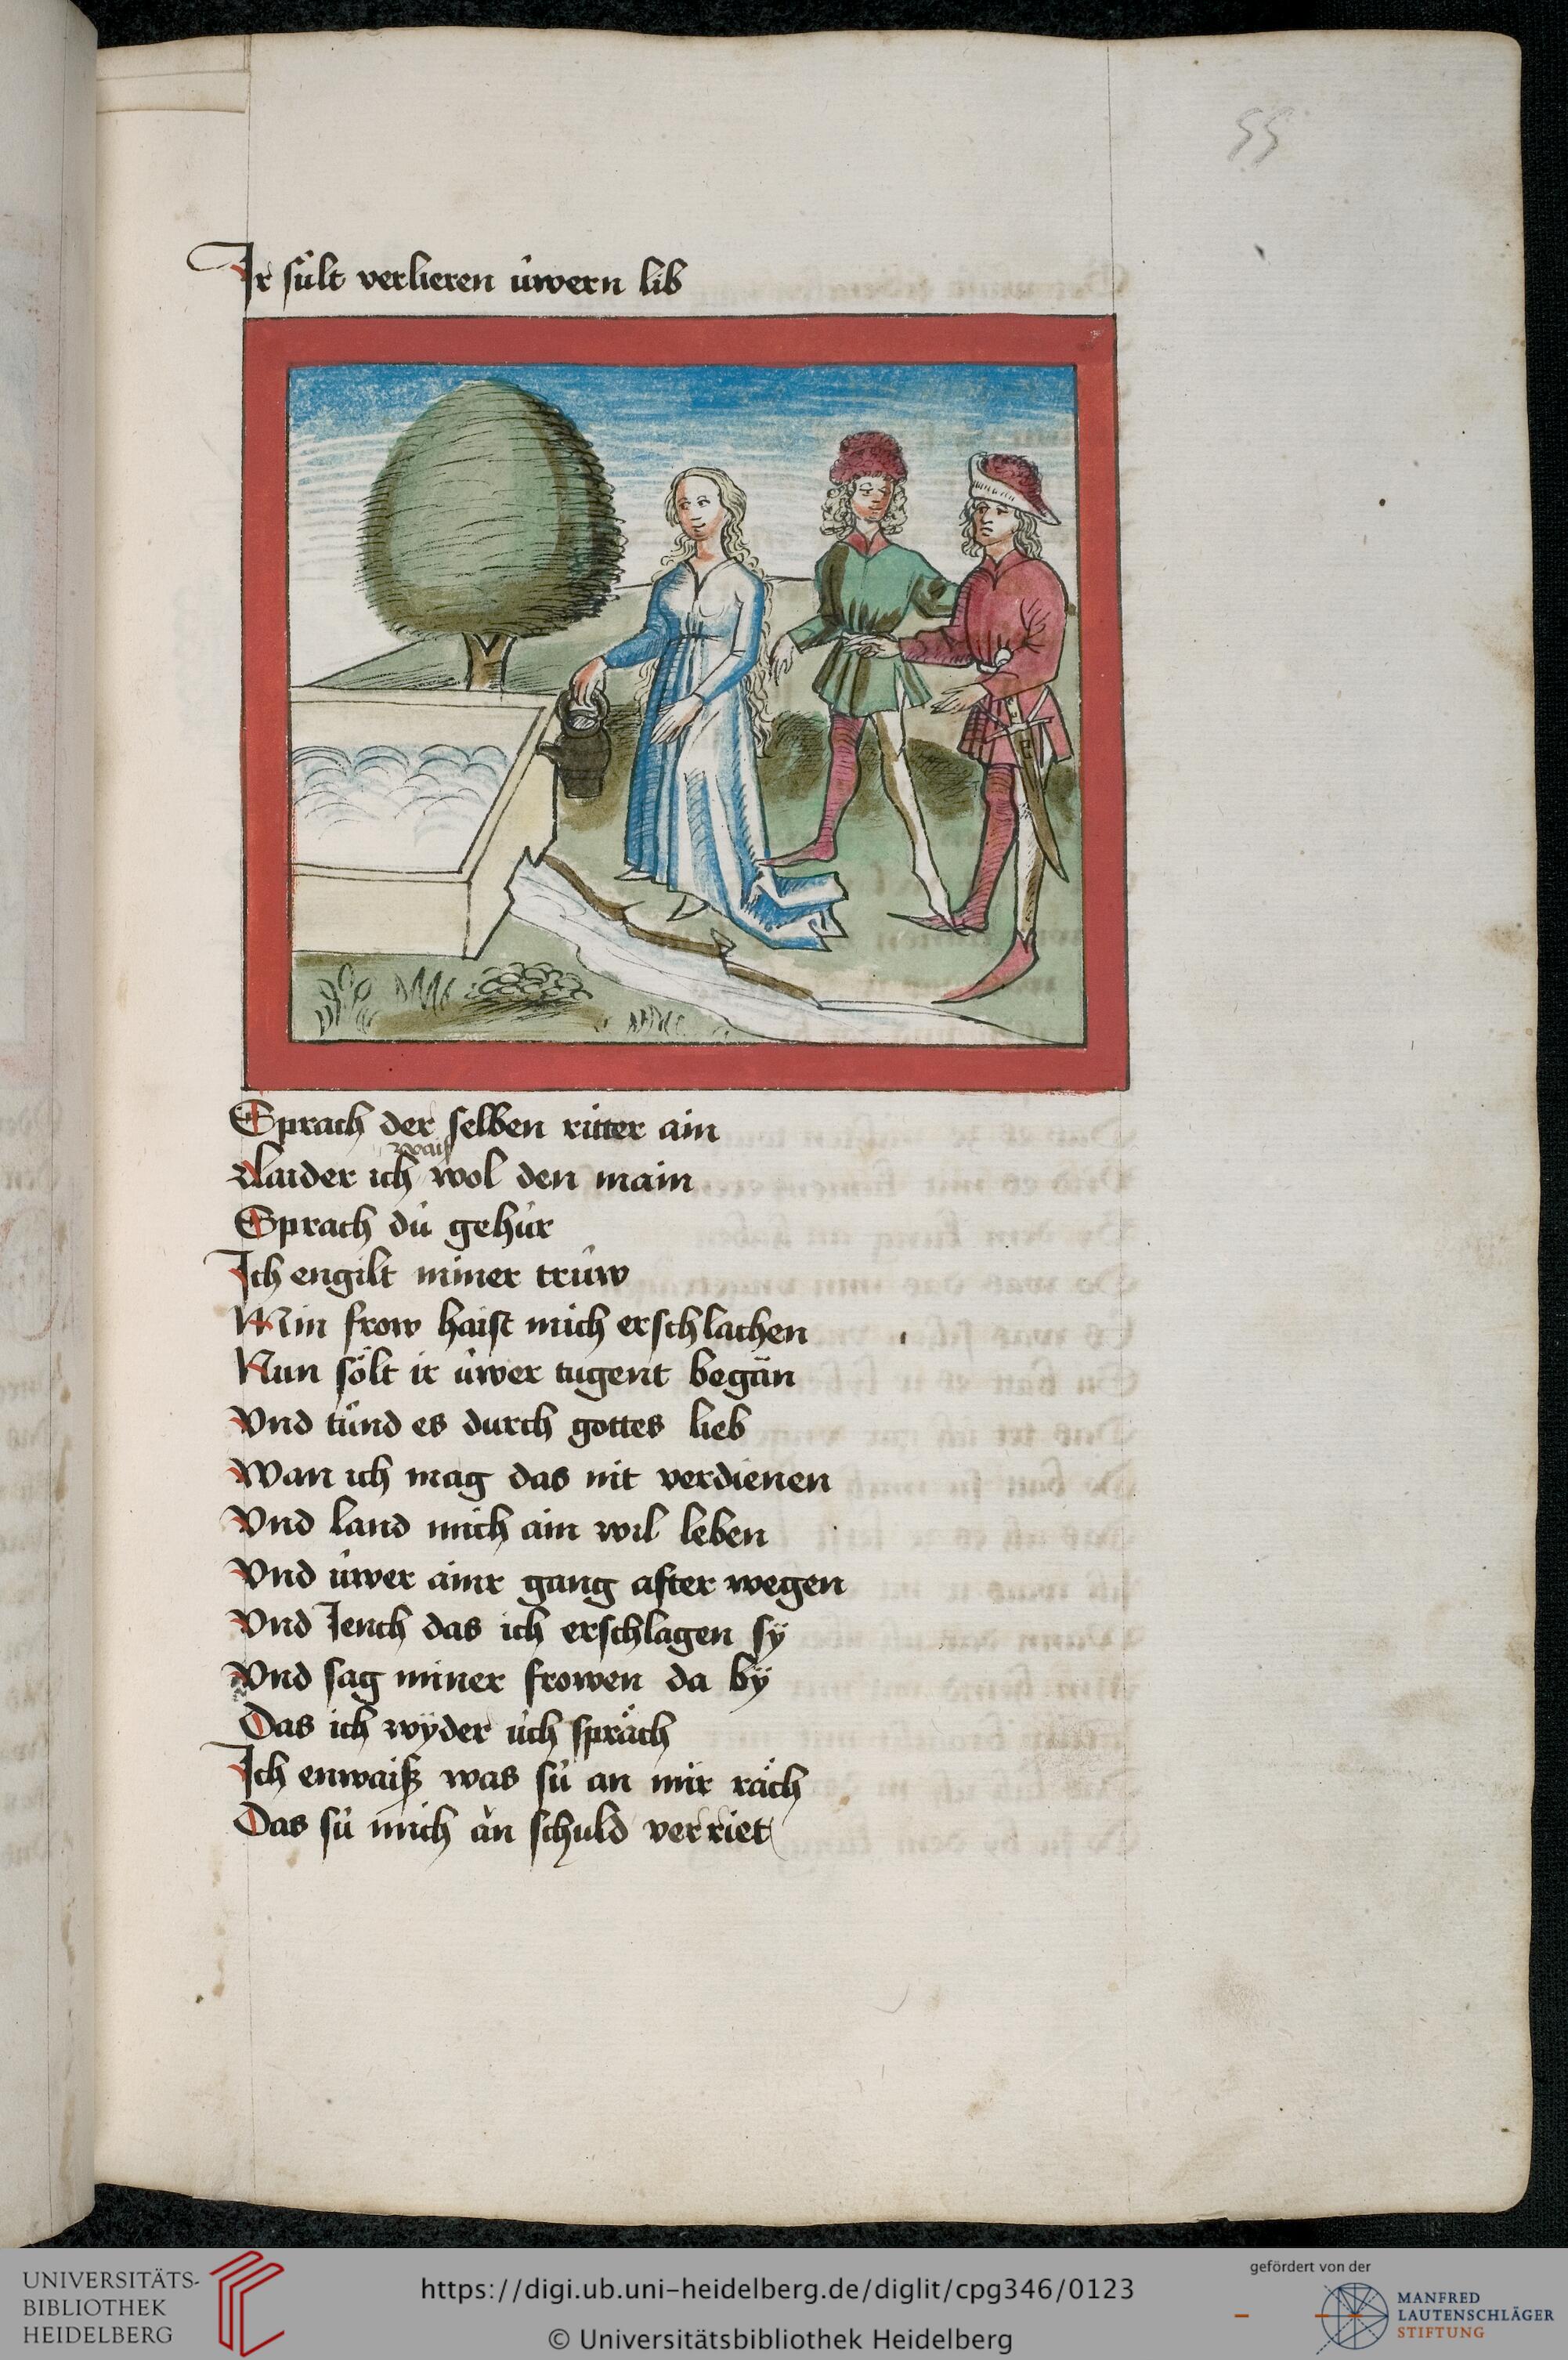 55
Ir sült verlieren üwern lib
Sprach der selben ritter ain
waiß
Laider ich wol den main
Sprach dü gehür
Ich engilt miner trüw
Min frow haist mich erschlachen
Nun sölt ir üwer tugent begän
Vnd tünd es durch gottes lieb
Wan ich mag das nit verdienen
Vnd land mich ain wil leben
Vnd üwer ainr gang after wegen
Vnd Jench das ich erschlagen sÿ
Vnd sag miner frowen da bÿ
Das ich wÿder üch spräch
Ich enwaiß was sü an mir räch
Das sü mich an schuld verriet
UNIVERSITÄTS-
BIBLIOTHEK
HEIDELBERG
https://digi.ub.uni-heidelberg.de/diglit/cpg346/0123
© Universitätsbibliothek Heidelberg
gefördert von der
MANFRED
LAUTENSCHLÄGER
STIFTUNG